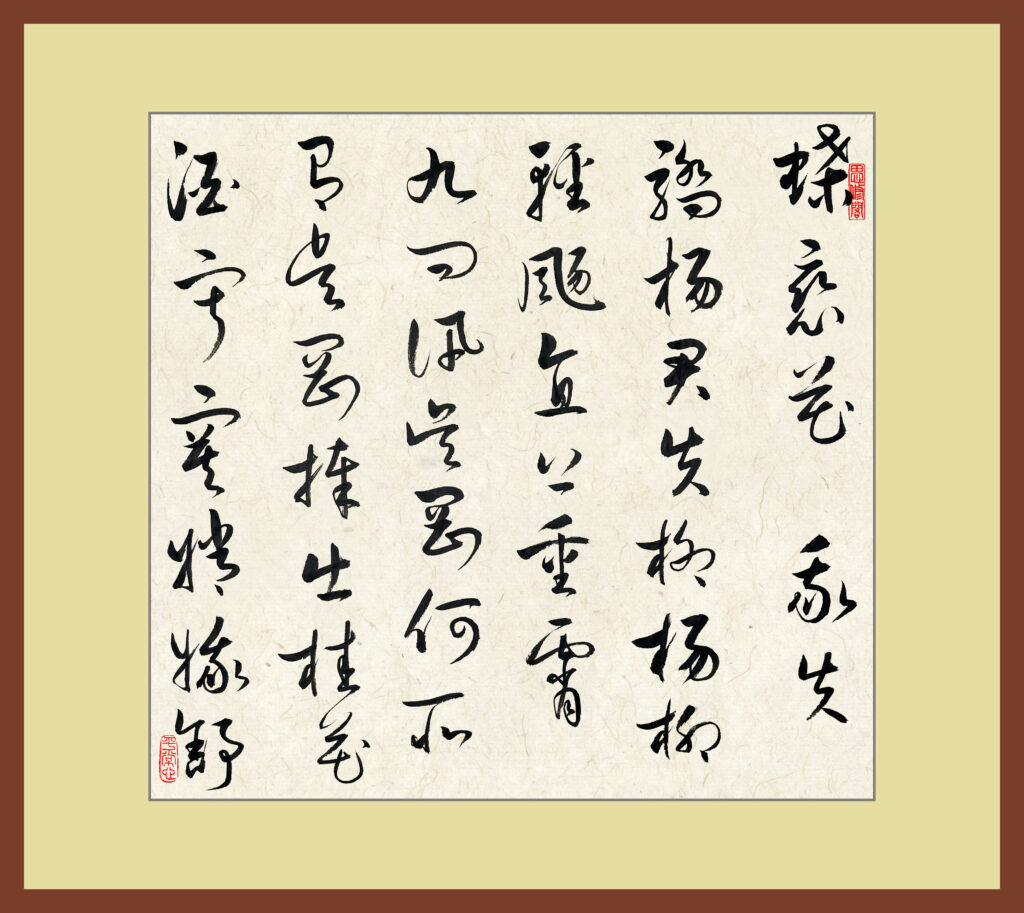 蝶恋花 我失
骄杨君失柳杨柳
轻飏直上重霄
九问讯吴刚何所
有吴刚捧出桂花
酒寂寞嫦娥舒
平常心